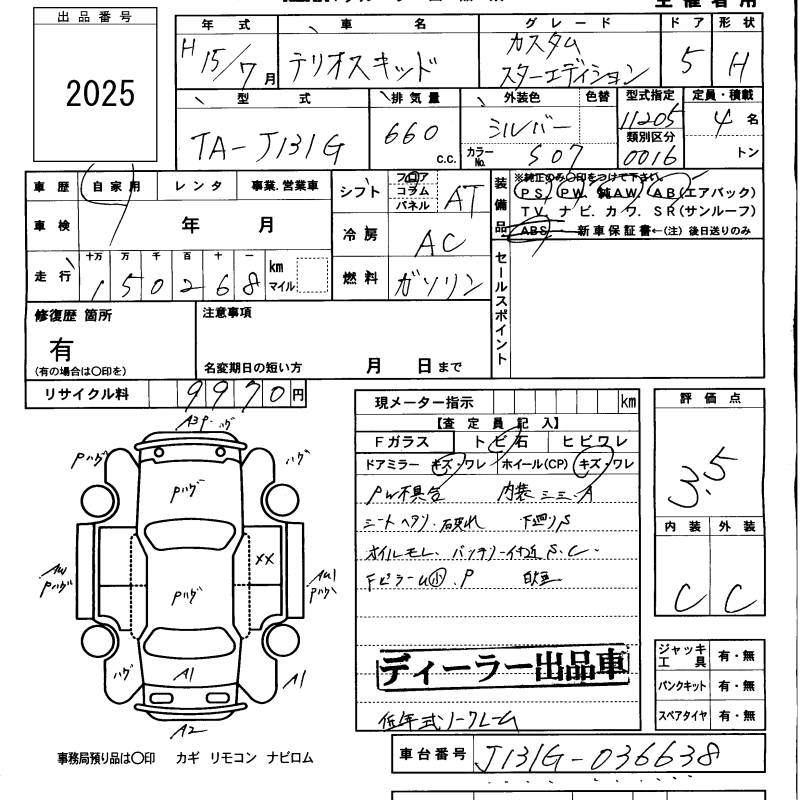 主催者用
出品番号
2025
年式 車名 グレード ドア 形状
H15/7月 テリオスキッド カスタム スターエディション 5 H
型式 排気量 外装色 色替 型式指定 定員・積載
TA-J131G 660 c.c. シルバー 11205 4名
カラーNo. S07 類別区分 0016 トン
車歴 自家用 レンタ 事業.営業車
シフト フロア コラム パネル AT
装備品 ※純正のみ〇印をつけて下さい。
PS PW 純AW AB(エアバック)
TV. ナビ. カワ. SR(サンルーフ)
ABS 新車保証書←(注) 後日送りのみ
車検 年 月
冷房 AC
走行 十万 万 千 百 十 一
150268 km マイル
燃料 ガソリン
セールスポイント
修復歴 箇所
有
(有の場合は〇印を)
注意事項
名変期日の短い方 月 日まで
リサイクル料 9970円
現メーター指示 km
【査定員記入】
Fガラス トビ石 ヒビワレ
ドアミラー キズ・ワレ ホイール(CP) キズ・ワレ
PW不具合 内装
シートヘタリ.破れ 下廻りS
オイルモレ. バッテリー付近 S.C.
Fピラーu小.P
ディーラー出品車
低年式ノークレーム
評価点
3.5
内装 外装
C C
ジャッキ工具 有・無
パンクキット 有・無
スペアタイヤ 有・無
車台番号 J131G-036638
A3P.ハゲ
Pハゲ
ハゲ
Pハゲ
XX
Pハゲ
Pハゲ
ハゲ
A1
A1
A2
事務局預り品は〇印 カギ リモコン ナビロム